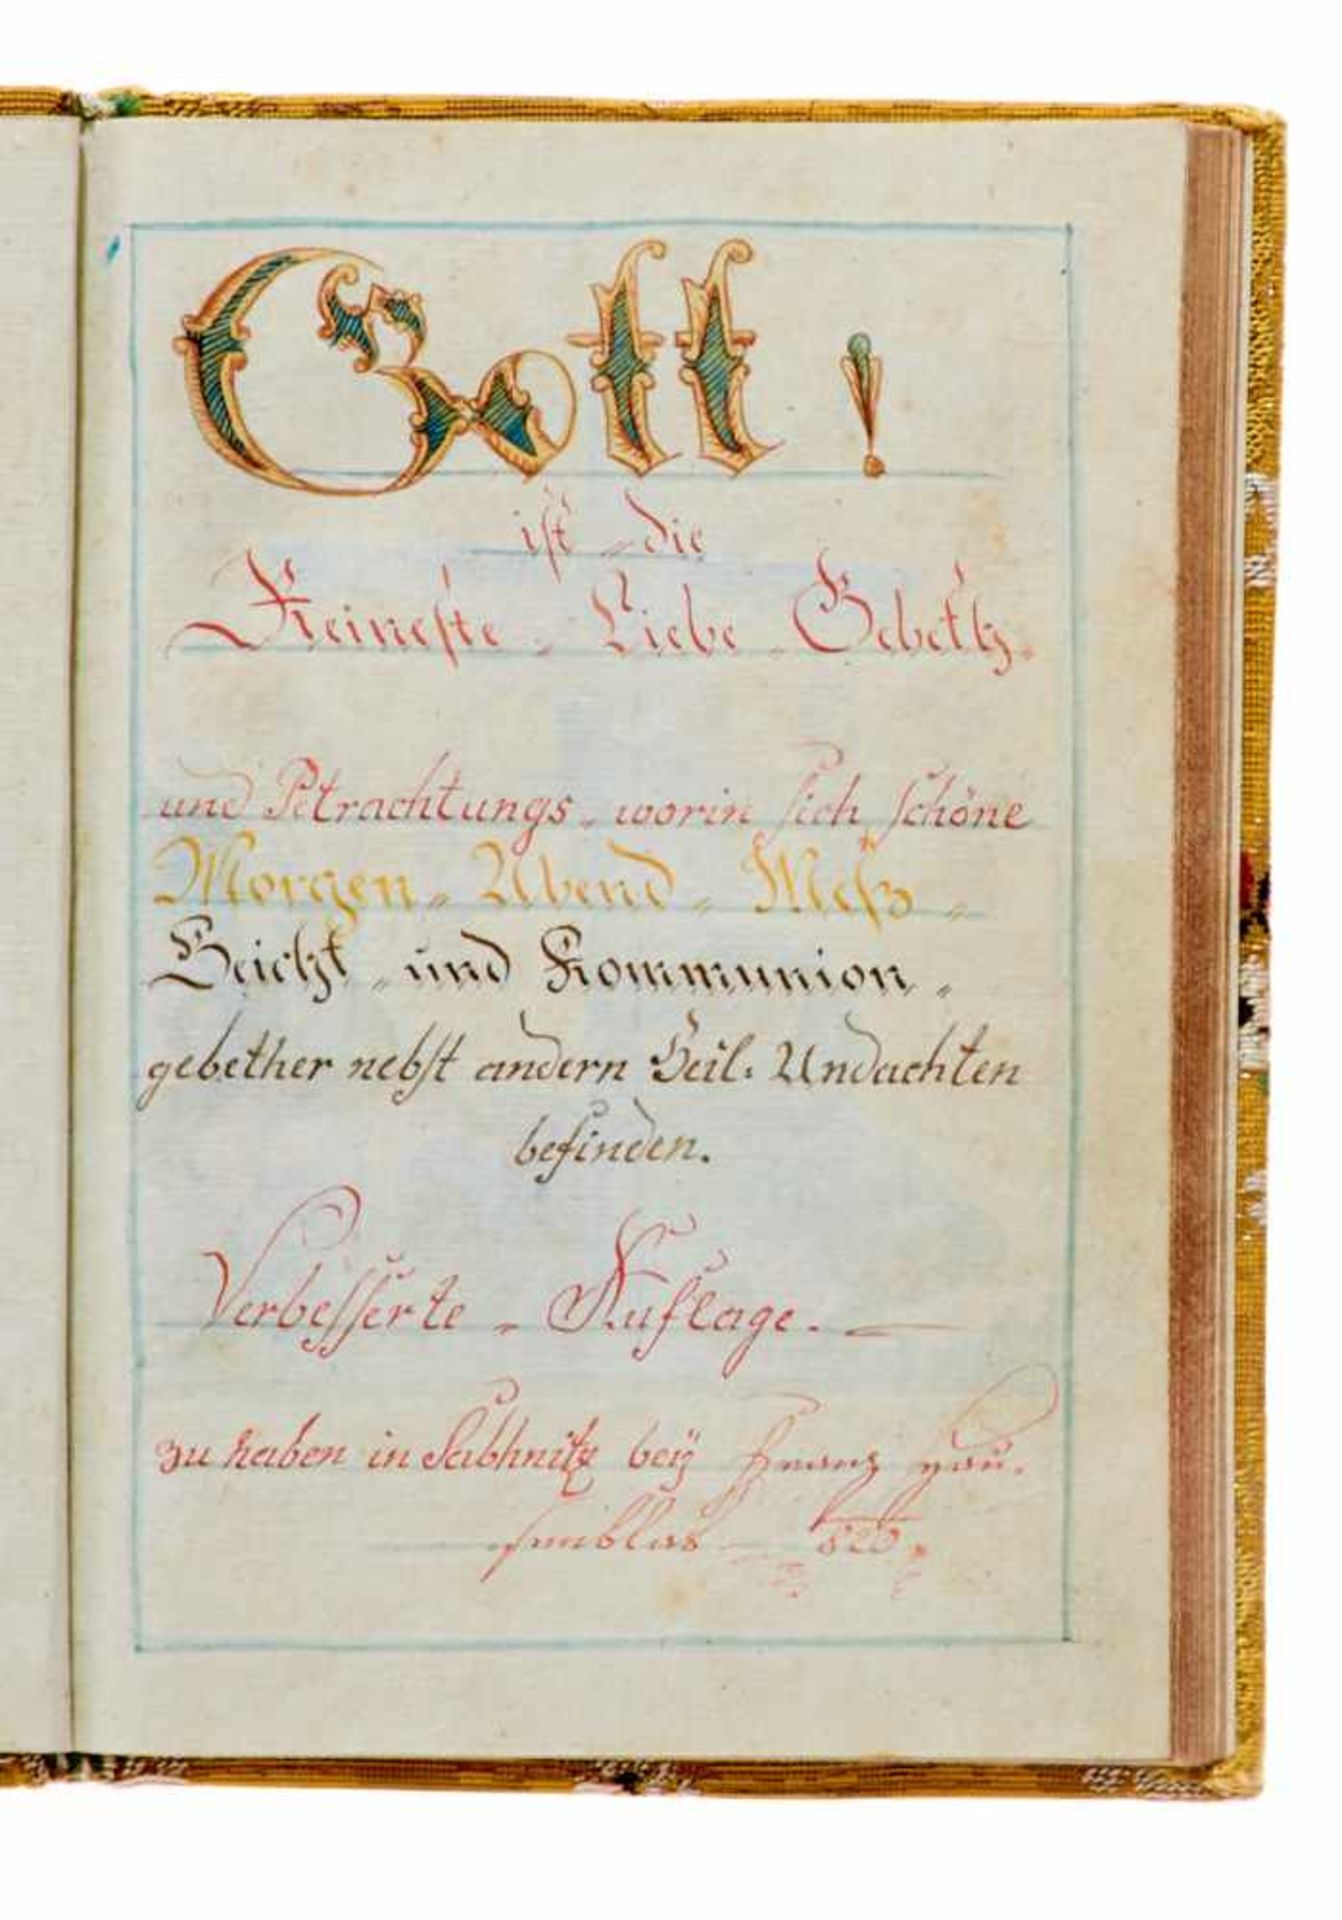 Gott !
ist die
Reineste - Liebe - Gebeth.
und Petrachtungs - worin sich schöne
Morgen - Abend - Meß -
Beicht - und Kommunion -
gebether nebst andern Heil: Andachten
befinden.
Verbesserte - Auflage. —
zu haben in Sabhnitz beÿ Franz
820